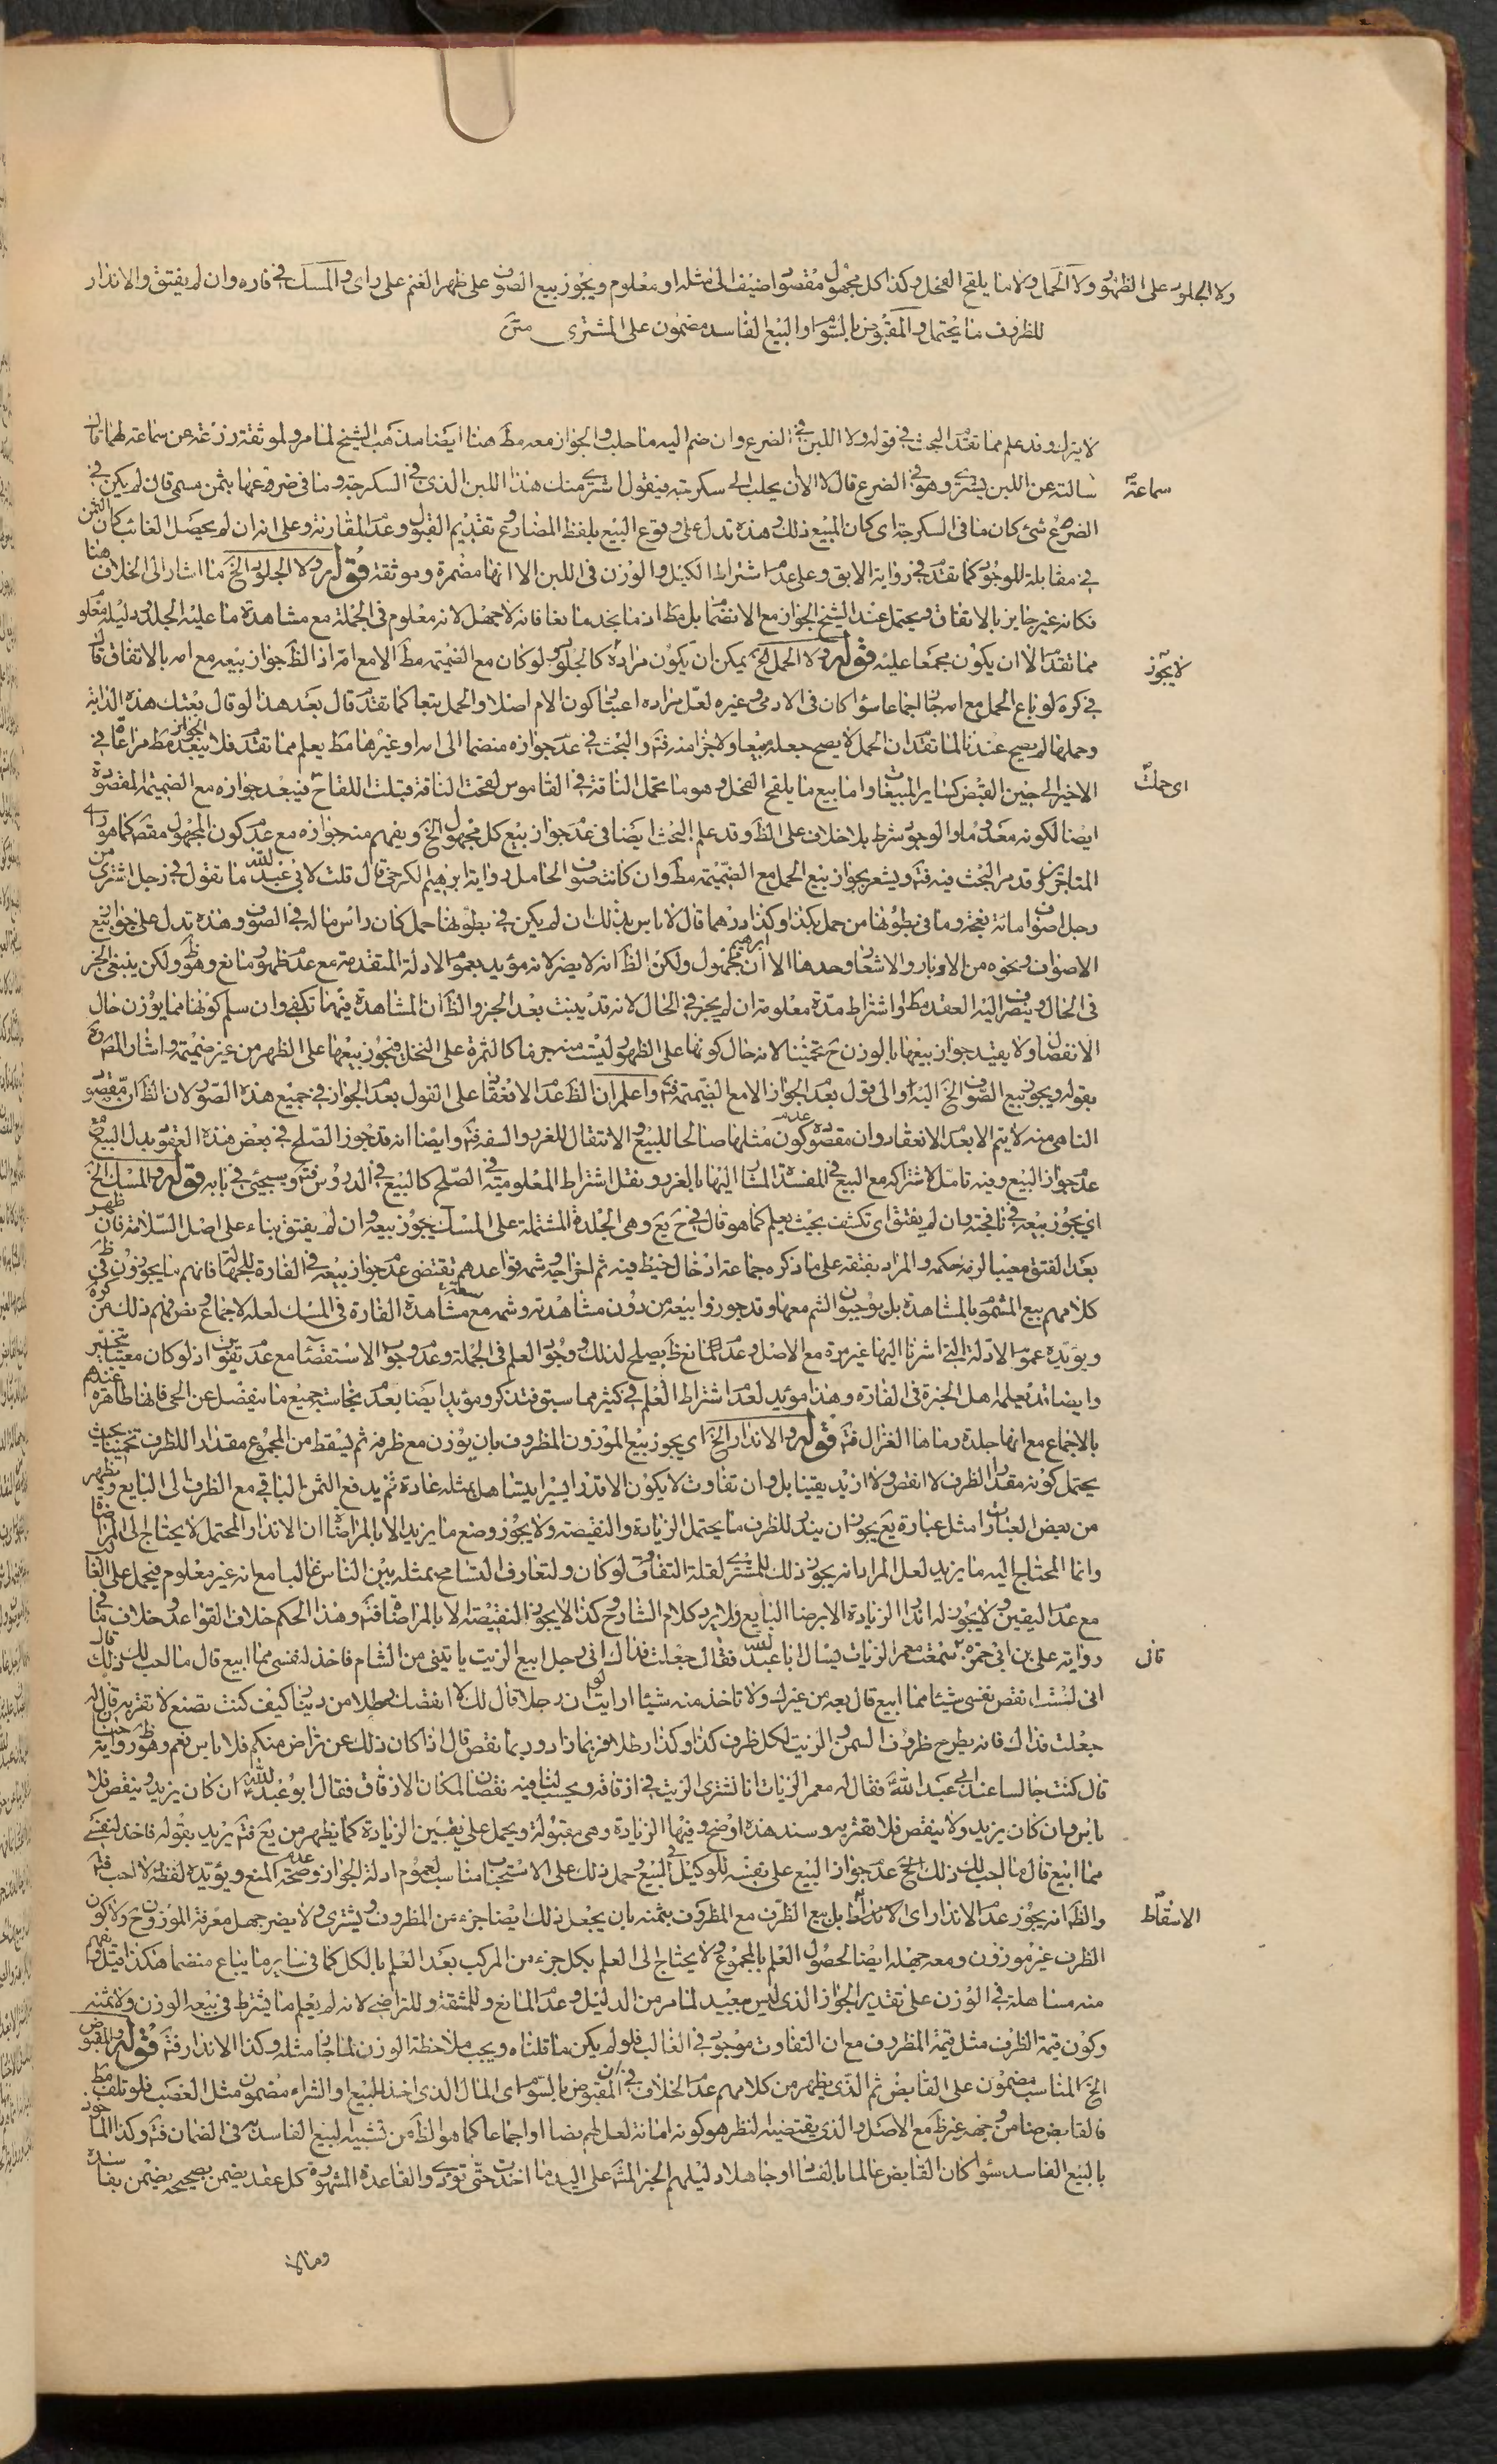 ولا الجلود على الظهور ولا الحمل ولا ما يلقح الفحل وكذا كل مجهول مقصود اضيف الى مثله او معلوم ويجوز بيع الصوف على ظهر الغنم على راى والمسك في فاره وان لم يفتق والانذار
للظروف ما يحتمل والمقبوض بالسوم او البيع الفاسد مضمون على المشترى متن
لا يترك وقد علم مما تقدم البحث في قوله ولا اللبن في الضرع وان ضم اليه ما حلب والجواز معه مط هنا ايضا مذهب الشيخ لما مر ولموثقة زرعة عن سماعة لهما قال
سماعة
سالته عن اللبن يشترى وهو في الضرع قال لا الا ان يحلب الى سكرجة فيقول اشترى منك هذا اللبن الذى في السكرجة وما في ضروعها بثمن مسمى فان لم يكن في
الضرع شئ كان ما في السكرجة اى كان المبيع ذلك وهذه تدل على وقوع البيع بلفظ المضارع وتقديم القبول وعدم المقارنة وعلى انه ان لم يحصل الغائب كان الثمن
في مقابلة الموجود كما تقدم في رواية الابق وعلى عدم اشتراط الكيل والوزن في اللبن الا انها مضمرة وموثقة قوله ولا الجلود الخ ما اشار الى الخلاف هنا
فكانه غير جايز بالاتفاق ويحتمل عند الشيخ الجواز مع الانضمام بل مط اذ ما نجد مانعا فانه لا جهل لانه معلوم في الجملة مع مشاهدة ما عليه الجلد ودليله معلوم
مما تقدم الا ان يكون مجمعا عليه قوله ولا الحمل الخ يمكن ان يكون مراده كالجلود ولو كان مع الضميمة مط الا مع امه اذ الظ جواز بيعه مع امه بالاتفاق قال
لا يجوز
في كره لو باع الحمل مع امه جاز اجماعا سواء كان في الادمى وغيره لعل مراده اعتبار كون الام اصلا والحمل تبعا كما تقدم قال بعد هذا لو قال بعتك هذه الدابة
وحملها لم يصح عندنا لما تقدم ان الحمل لا يصح جعله مبيعا ولا جزا منه فتم والبحث في عدم جوازه منضما الى امه او غيرها مط يعلم مما تقدم فلا يبعد الجواز مط مراعا في
الاخير الى حين القبض كساير المبيعات واما بيع ما يلقح الفحل وهو ما تحمل الناقة في القاموس لقحت الناقة قبلت اللقاح فيبعد جوازه مع الضميمة المقصودة
اى حملت
ايضا لكونه معدوما والوجود شرط بلا خلاف على الظ وقد علم البحث ايضا في عدم جواز بيع كل مجهول الخ ويفهم منه جوازه مع عدم كون المجهول مقصودا كما هو راى
المتاخرين وقد مر البحث فيه فتم ويشعر بجواز بيع الحمل مع الضميمة مط وان كانت صوف الحامل رواية ابرهيم الكرخى قال قلت لابى عبد الله ما تقول في رجل اشترى من
رجل اصواف مائة نعجة وما في بطونها من حمل بكذا وكذا درهما قال لا باس بذلك ان لم يكن في بطونها حمل كان راس ماله في الصوف وهذه تدل على جواز بيع
الاصواف ونحوه من الاوبار والاشعار وحدها الا ان ابرهيم مجهول ولكن الظ انه لا يضر لانه مؤيد بعموم الادلة المتقدمة مع عدم ظهور مانع وهو ظ ولكن ينبغى الجز
في الحال وينصرف اليه العقد مط او اشتراط مدة معلومة ان لم يجز في الحال لانه قد ينبت بعد الجز والظ ان المشاهدة فيهما تكفى وان سلم كونها مما يوزن حال
الانفصال ولا يفيد جواز بيعها بالوزن ح تخمينا لانه حال كونها على الظهور ليست منه جزما كالثمرة على النخل فيجوز بيعها على الظهر من غير ضميمة واشار المصره
بقوله ويجوز بيع الصوف الخ اليه والى قول بعدم الجواز الا مع الضميمة فتم واعلم ان الظ عدم الانعقاد على القول بعدم الجواز في جميع هذه الصور لان الظ ان مقصود
الناهى منه لا يتم الا بعدم الانعقاد وان مقصوده عدم كون مثلها صالحا للبيع والانتقال للغرر والسفه فتم وايضا انه قد جوز الصلح في بعض هذه العقود بدل البيع مع
عدم جواز البيع وفيه تامل لاشتراكه مع البيع في المفسدة المشار اليها بالغرر ونقل اشتراط المعلومية في الصلح كالبيع في الدروس فتم وسيجئ في بابه قوله والمسك الخ
اى يجوز بيعه في نافجته وان لم يفتق اى تكشف بحيث يعلم كما هو قال في ح يع وهى الجلدة المشتملة على المسك يجوز بيعه وان لم يفتق بناء على اصل السلامة فان ظهر
بعد الفتق معيبا لزمه حكمه والمراد بفتقه على ما ذكره جماعة ادخال خيط فيه ثم اخراجه وشمه قواعدهم تقتضى عدم جواز بيعه في الفارة للجهالة فانهم ما يجوزون في ظ
كلامهم بيع المشموم بالمشاهدة بل يوجبون الشم معها وقد جوزوا بيعه من دون مشاهدته وشمه مع مشاهدة الفارة في المسك لعله لاجماع ونص فهم ذلك من كره
ويؤيده عموم الادلة التى اشرنا اليها غير مرة مع الاصل وعدم مانع ظ يصلح لذلك ووجود العلم في الجملة وعدم وجوب الاستقصاء مع عدم تفويت اذ لو كان معيبا يتخير
وايضا قد يعلمه اهل الخبرة في الفارة وهذا مؤيد لعدم اشتراط العلم في كثير مما سبق فتذكر ومؤيد ايضا بعدم نجاسة جميع ما ينفصل عن الحى فانها طاهرة عندهم
بالاجماع مع انها جلدة رماها الغزال فتم قوله والانذار الخ اى يجوز بيع الموزون المظروف بان يوزن مع ظرفه ثم يسقط من المجموع مقدارا للظرف تخمينا بحيث
يحتمل كونه مقدار الظرف لا انقص ولا ازيد يقينا بل وان تفاوت لا يكون الا قدرا يسيرا يتساهل بمثله عادة ثم يدفع الثمن الباقي مع الظرف الى البايع ويظهر
من بعض العبارات مثل عبارة يع يجوز ان يندر للظرف ما يحتمل الزيادة والنقيصة ولا يجوز وضع ما يزيد الا بالمراضاة ان الاندار المحتمل لا يحتاج الى المراضاة
وانما المحتاج اليه ما يزيد لعل المراد انه يجوز ذلك للمشترى لقلة التفاوت لو كان ولتعارف التسامح بمثله بين الناس غالبا مع انه غير معلوم فيحمل على الغالب
مع عدم اليقين ولا يجوز له اندار الزيادة الا برضا البايع ولا يرد كلام الشارح كذا لا يجوز النقيصة الا بالمراضاة فتم وهذا الحكم خلاف القواعد وخلاف ما في
رواية على بن ابى حمزه قال سمعت معمر الزيات يسال ابا عبد الله فقال جعلت فداك انى رجل ابيع الزيت ياتينى من الشام فاخذ لنفسى مما ابيع قال ما احب لك ذلك قال
قال
انى لست انقص نفسى شيئا مما ابيع قال بعه من غيرك ولا تاخذ منه شيئا ارايت لو ان رجلا قال لك لا انقصك رطلا من دينار كيف كنت تصنع لا تقربه قال له
جعلت فداك فانه يطرح ظروف السمن والزيت لكل ظرف كذا وكذا رطلا فربما زاد وربما نقص قال اذا كان ذلك عن تراض منكم فلا باس نعم وهو ظ رواية حنان
قال كنت جالسا عند ابى عبد الله فقال له معمر الزيات انا نشترى الزيت في ازقاقه ويحسب لنا فيه نقصان لمكان الازقاق فقال ابو عبد الله ان كان يزيد وينقص فلا
باس وان كان يزيد ولا ينقص فلا تقربه وسند هذه اوضح وفيها الزيادة وهى مقبولة ويحمل على يقين الزيادة كما يظهر من يع فتم يريد بقوله فاخذ لنفسى
مما ابيع قال ما احب لك ذلك الخ عدم جواز البيع على نفسه للوكيل في البيع وحمل ذلك على الاستحباب مناسب لعموم ادلة الجواز وعدم صحة المنع ويؤيده لفظة لا احب فتم
والظ انه يجوز عدم الاندار اى الاسقاط بل بيع الظرف مع المظروف بثمنه بان يجعل ذلك ايضا جزء من المظروف ويشترى ولا يضر جهل معرفة الموزون ح ولا كون
الاسقاط
الظرف غير موزون ومعه جهله ايضا لحصول العلم بالمجموع ولا يحتاج الى العلم بكل جزء من المركب بعد العلم بالكل كما في ساير ما يباع منضما هكذا قيل ويفهم
منه مساهلة في الوزن على تقدير الجواز الذى ليس ببعيد لما مر من الدليل وعدم المانع وللمشقة وللتراضى لانه لم يعلم ما يشترط في بيعه الوزن ولا ثمنه
وكون قيمة الظرف مثل قيمة المظروف مع ان التفاوت موجود في الغالب فلو لم يكن ما قلناه ويجب ملاحظة الوزن لما جاز مثله وكذا الاندار فتم قوله والمقبوض
الخ المناسب مضمون على القابض ثم الذى يظهر من كلامهم عدم الخلاف في ان المقبوض بالسوم اى المال الذى اخذ للبيع او الشراء مضمون مثل الغصب فلو تلف مط
فالقابض ضامن وجهه غير ظ مع الاصل والذى يقتضيه النظر هو كونه امانة لعل لهم نصا او اجماعا كما هو الظ من تشبيه البيع الفاسد به في الضمان فتم وكذا الماخوذ
بالبيع الفاسد سواء كان القابض عالما بالفساد او جاهلا دليلهم الخبر المش على اليد ما اخذت حتى تؤدى والقاعدة المشهورة كل عقد يضمن بصحيحه يضمن بفاسده
ومالا